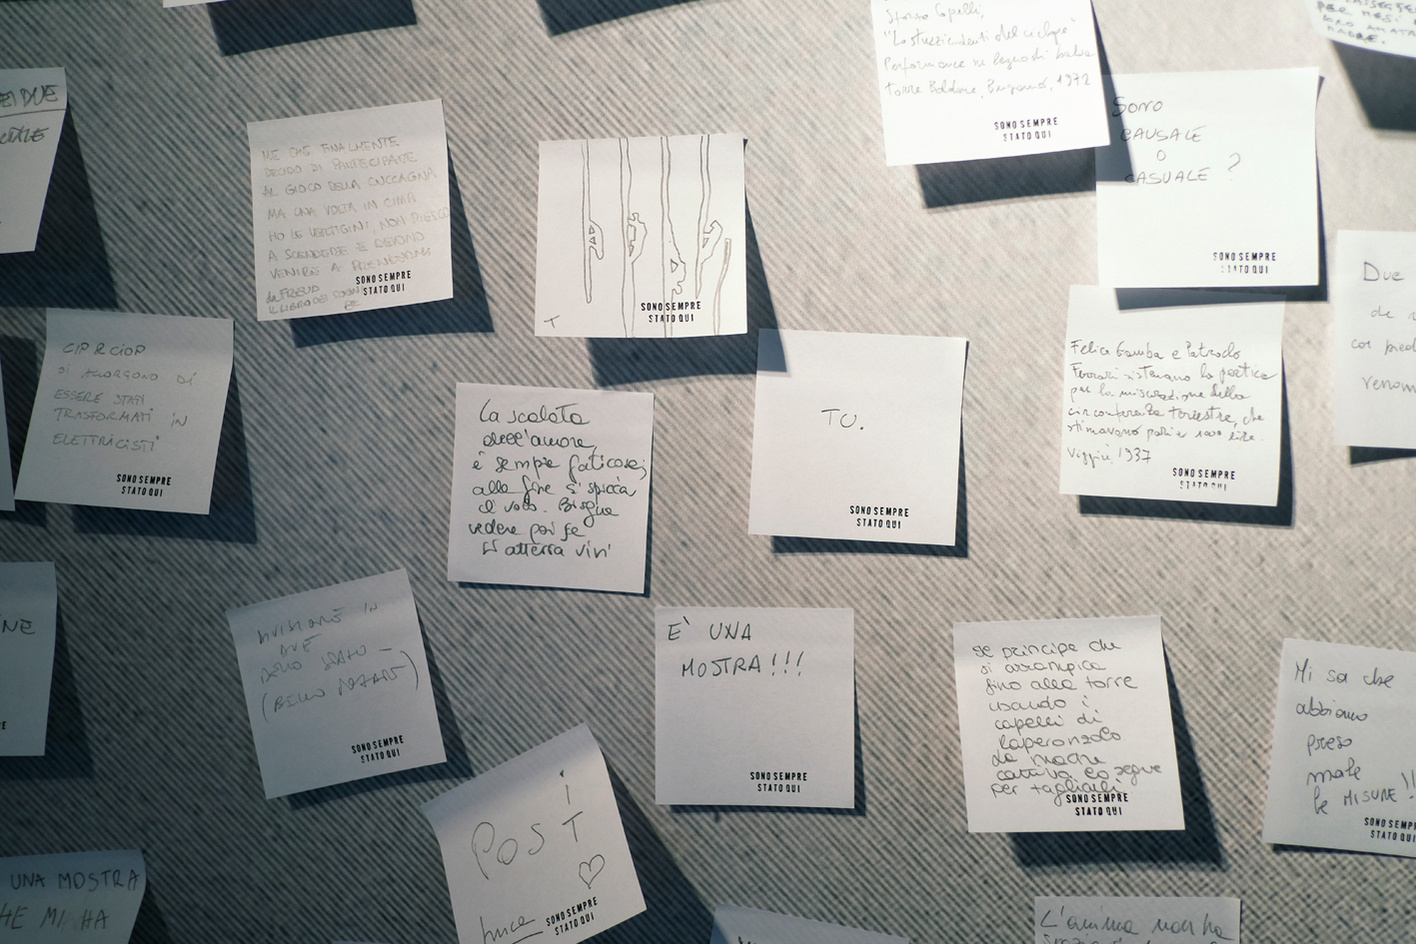 PER MESI
MADRE.
"Lo stuzzicadenti del ciclope"
Performance in legno di balsa
Torre Boldone, Bergamo, 1972
SONO SEMPRE
STATO QUI
Sono
CAUSALE
O
CASUALE ?
SONO SEMPRE
STATO QUI
DUE
ME CHE FINALMENTE
DECIDO DI PARTECIPARE
AL GIOCO DELLA CUCCAGNA
MA UNA VOLTA IN CIMA
HO LE VERTIGINI, NON RIESCO
A SCENDERE E DEVONO
VENIRE A PRENDERMI
da FREUD
IL LIBRO DEI SOGNI
SONO SEMPRE
STATO QUI
T
SONO SEMPRE
STATO QUI
Due
de
renom
CIP & CIOP
SI ACCORGONO DI
ESSERE STATI
TRASFORMATI IN
ELETTRICISTI
SONO SEMPRE
STATO QUI
La scalata
dell'amore,
è sempre faticosa;
alla fine si spicca
il volo. Bisogna
vedere poi se
si atterra vivi
TU.
SONO SEMPRE
STATO QUI
Felice Gamba e Patroclo
Ferrari sistemano la poetica
per la misurazione della
circonferenza terrestre, che
stimavano pari a 1000 lire.
Viggiù, 1937
SONO SEMPRE
STATO QUI
INE
IN
DUE
SONO SEMPRE
STATO QUI
E' UNA
MOSTRA!!!
SONO SEMPRE
STATO QUI
se principe che
si arrampica
fino alla torre
usando i
capelli di
Raperonzolo
la madre
cattiva lo segue
per tagliarli
SONO SEMPRE
STATO QUI
Mi sa che
abbiamo
preso
male
le MISURE!!
SONO SEMPRE
STATO QUI
POST
i
T
Luca
SONO SEMPRE
STATO QUI
UNA MOSTRA
HE MI HA
L'anima non ha